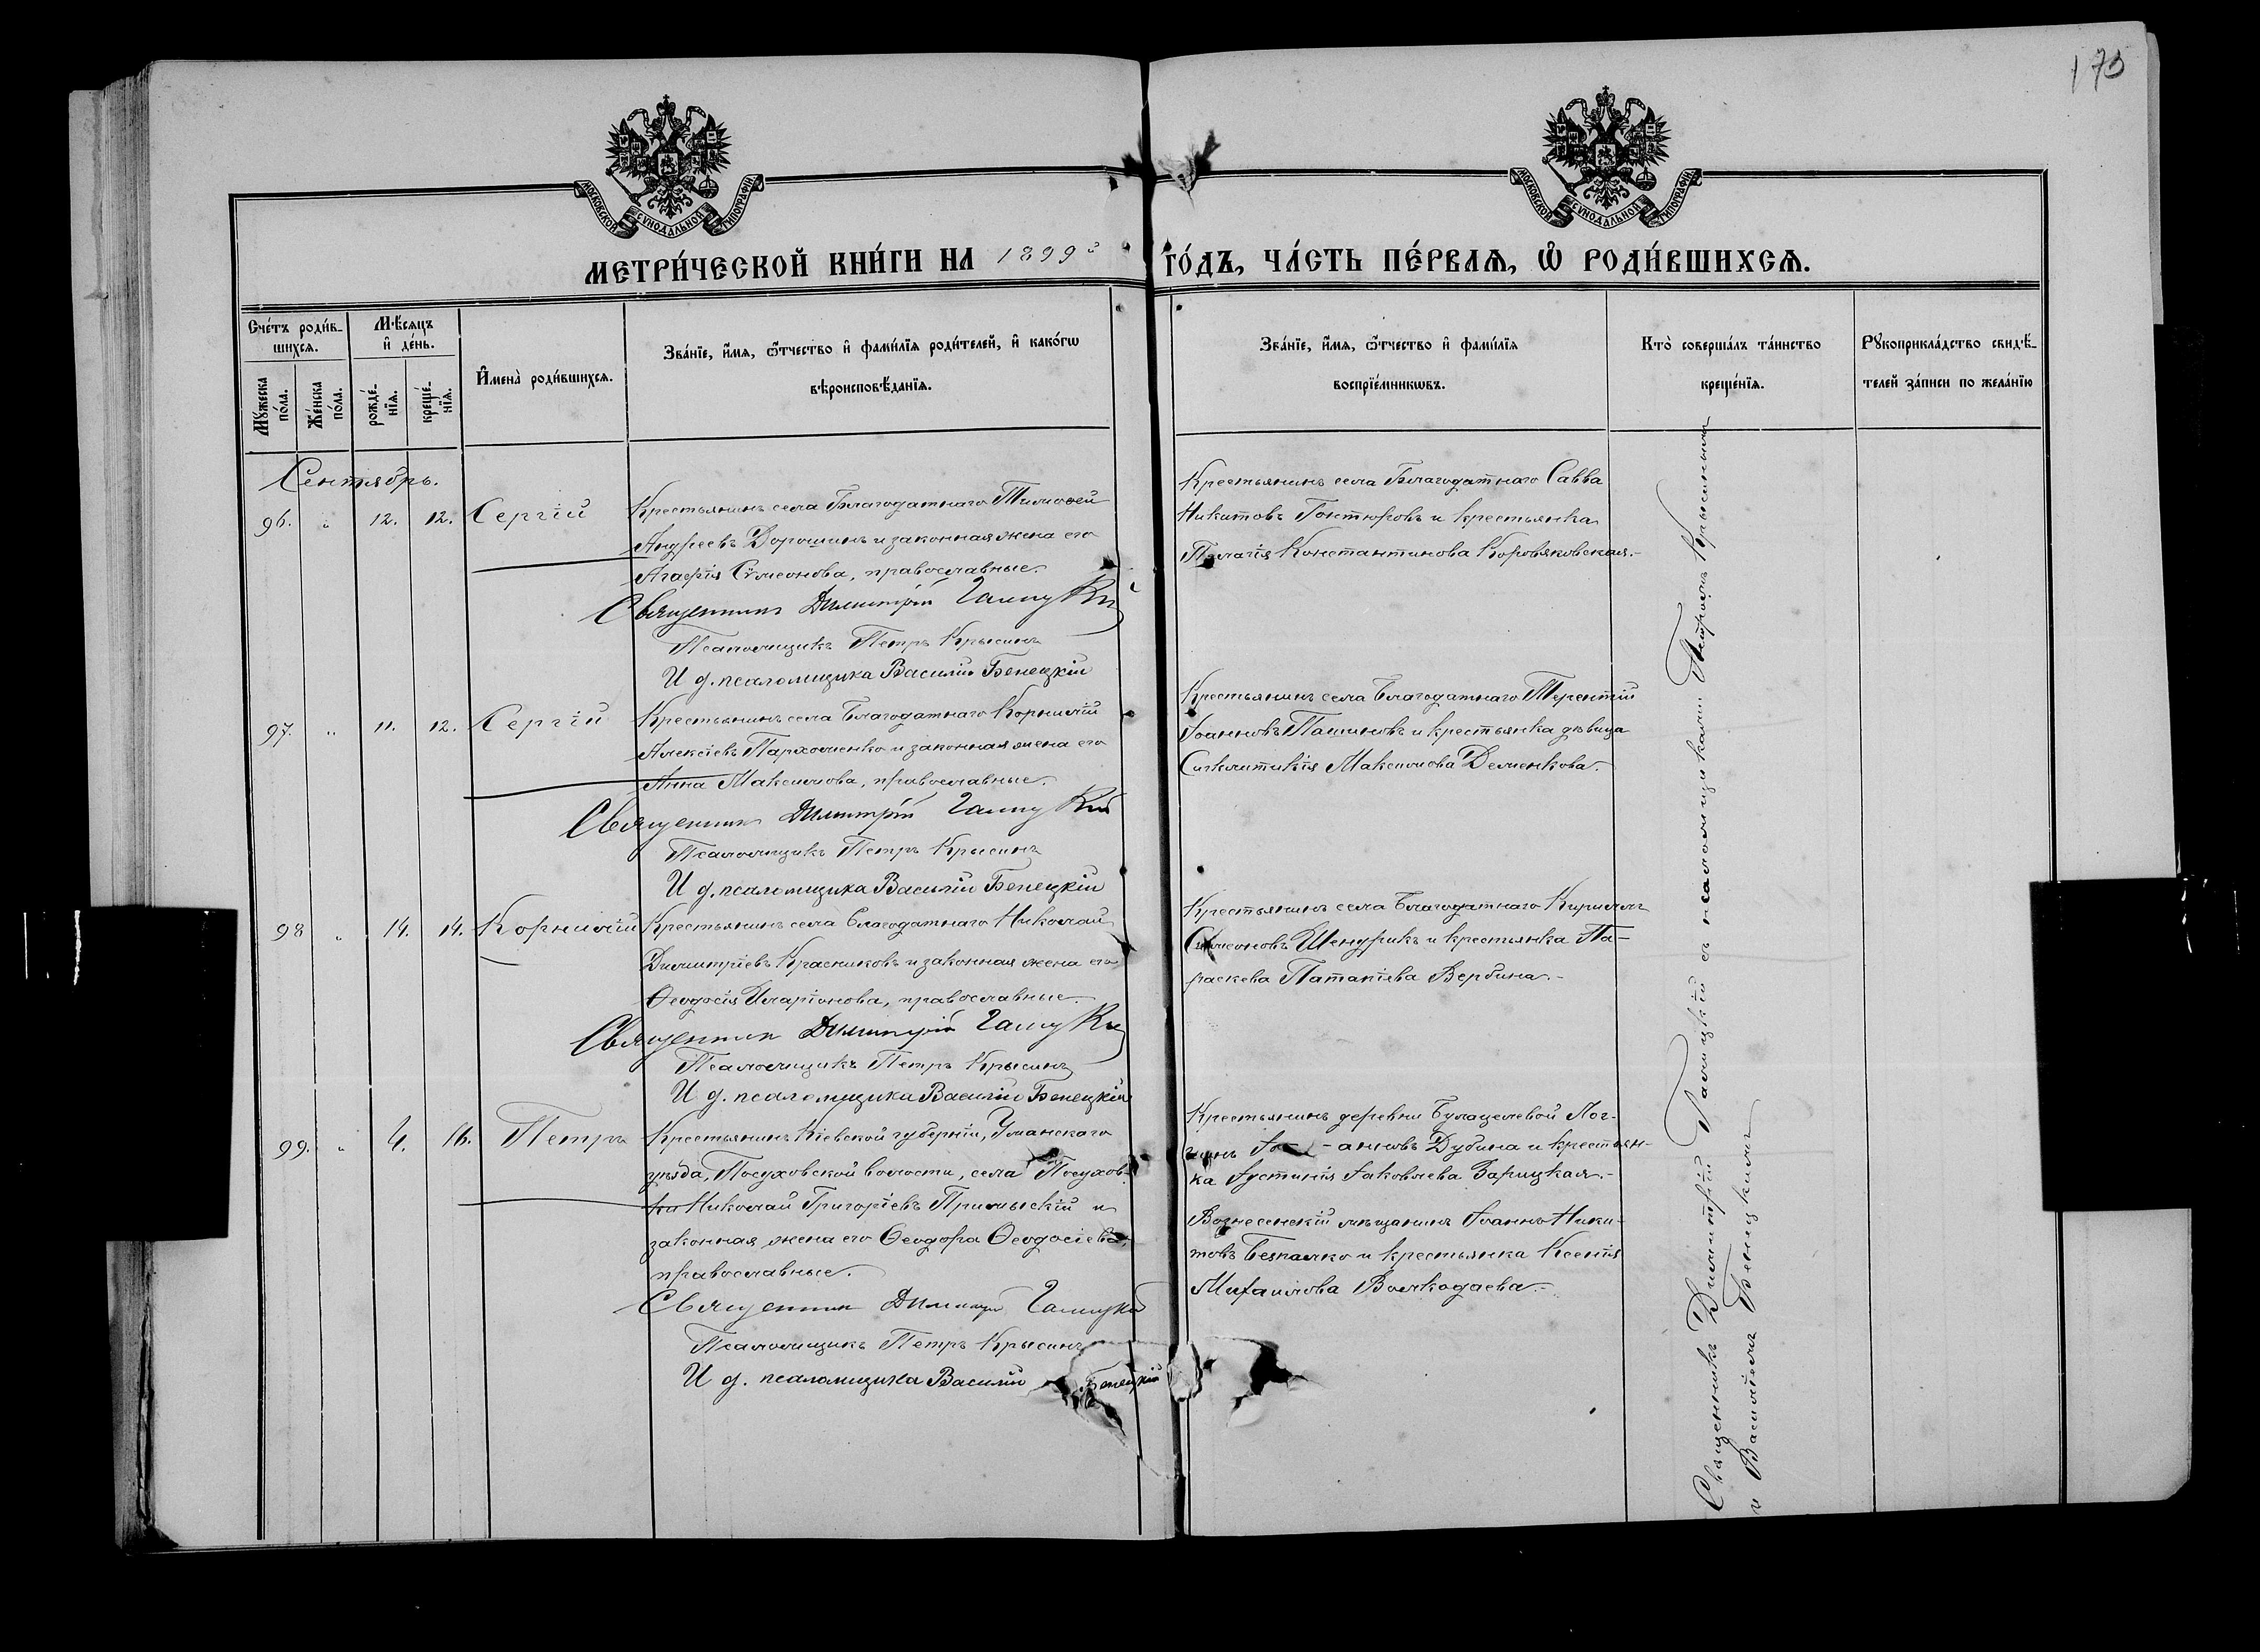 173
МОСКОВСКОЙ СУНОДАЛЬНОЙ ТИПОГРАФІИ
МОСКОВСКОЙ СУНОДАЛЬНОЙ ТИПОГРАФІИ
МЕТРИ́ЧЕСКОЙ КНИ́ГИ НА 1899й ГО́ДЪ, ЧА́СТЬ ПЕ́РВАѦ, Ѡ РОДИ́ВШИХСѦ.
Сче́тъ роди́в-
шихсѧ.
Мꙋ́жеска по́ла.
Же́нска по́ла.
Мѣ́сѧцъ и де́нь.
рожде́-
нїѧ.
креще́-
нїѧ.
Имена̀ роди́вшихсѧ.
Зва́нїе, и́мѧ, ѻ́тчество и фами́лїѧ роди́телей, и како́гѡ
вѣроисповѣ́данїѧ.
Зва́нїе, и́мѧ, ѻ́тчество и фами́лїѧ
воспрїе́мникѡвъ.
Кто̀ соверша́лъ та́инство
креще́нїѧ.
Рꙋкоприкла́дство свидѣ́-
телей за́писи по жела́нїю
Сентябрь.
96. " 12. 12. Сергій
Крестьянинъ села Благодатнаго Тимоѳей
Андреевъ Дорошинъ и законная жена его
Агафія Сѵмеонова, православные.
Священникъ Димитрій Галицкій
Псаломщикъ Петръ Крысинъ
И д. псаломщика Василій Бенецкій
Крестьянинъ села Благодатнаго Савва
Никитовъ Гонтюровъ и крестьянка
Пелагія Константинова Коровяковская.-
97. " 11. 12. Сергій
Крестьянинъ села Благодатнаго Корнилій
Алексіевъ Пархоменко и законная жена его
Анна Максимова, православные.
Священникъ Димитрій Галицкій
Псаломщикъ Петръ Крысинъ
И д. псаломщика Василій Бенецкій
Крестьянинъ села Благодатнаго Терентій
Іоанновъ Пашиновъ и крестьянка дѣвица
Сигклитикія Максимова Деменкова.
98 " 14. 14. Корнилій
Крестьянинъ села Благодатнаго Николай
Димитріевъ Красниковъ и законная жена его
Ѳеодосія Иларіонова, православные.
Священникъ Димитрій Галицкій
Псаломщикъ Петръ Крысинъ
И д. псаломщика Василій Бенецкій
Крестьянинъ села Благодатнаго Кириллъ
Сѵмеоновъ Шендрикъ и крестьянка Па-
раскева Патапіева Вербина.-
99. " 4. 16. Петръ
Крестьянинъ Кіевской губерніи, Уманскаго
уѣзда, Посуховской волости, села Посухов-
ки Николай Григоріевъ Прилыскій и
законная жена его Ѳеодора Ѳеодосіева,
православные.
Священникъ Димитрій Галицкій
Псаломщикъ Петръ Крысинъ
И д. псаломщика Василій Бенецкій
Крестьянинъ деревни Булацелевой Лог-
гинъ Іо- анновъ Дубина и крестьян-
ка Іустинія Іаковлева Зарицкая.-
Вознесенскій мѣщанинъ Іоаннъ Ники-
товъ Безпалко и крестьянка Ксенія
Михаилова Волкодаева.-
Священникъ Димитрій Галицкій съ псаломщиками Петромъ Крысинымъ
и Василіемъ Бенецкимъ